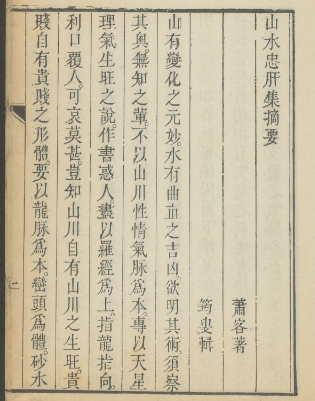 山水忠肝集摘要
蕭客著
筠叟輯
山有變化之元妙。水有曲直之吉凶。欲明其術。須察
其奥。無知之輩。不以山川性情氣脉爲本。專以天星
理氣生旺之說。作書惑人。盡以羅經爲上。指龍指向。
利口覆人。可哀莫甚。豈知山川自有山川之生旺。貴
賤自有貴賤之形體。要以龍脉爲本。巒頭爲體。砂水
一